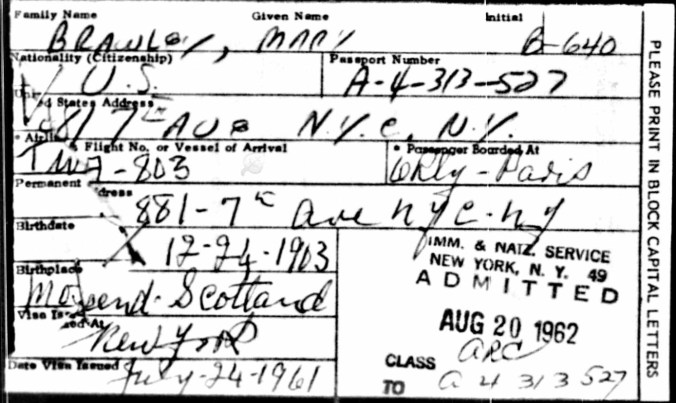 Family Name Given Name Initial
BRAWLEY, MARY B-640
Nationality (Citizenship) Passport Number
U.S. A-4-313-527
United States Address
881 7th AVE N.Y.C. N.Y.
Flight No. or Vessel of Arrival * Passenger Boarded At
TWA-803 Orly-Paris
Permanent dress
881-7th Ave NYC-NY
Birthdate
12-24-1903
IMM. & NATZ. SERVICE
NEW YORK, N. Y. 49
ADMITTED
Birthplace
Scotland
AUG 20 1962
Visa Issued At
New York
ARC
CLASS
Date Visa Issued
July-24-1961
TO A 4 313 527
PLEASE PRINT IN BLOCK CAPITAL LETTERS